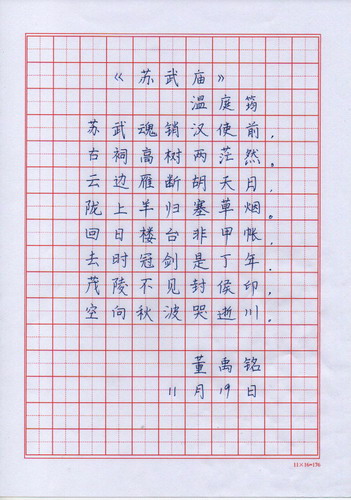 《苏武庙》
温庭筠
苏武魂销汉使前，
古祠高树两茫然。
云边雁断胡天月，
陇上羊归塞草烟。
回日楼台非甲帐，
去时冠剑是丁年。
茂陵不见封侯印，
空向秋波哭逝川。
董禹铭
11月19日
11×16=176